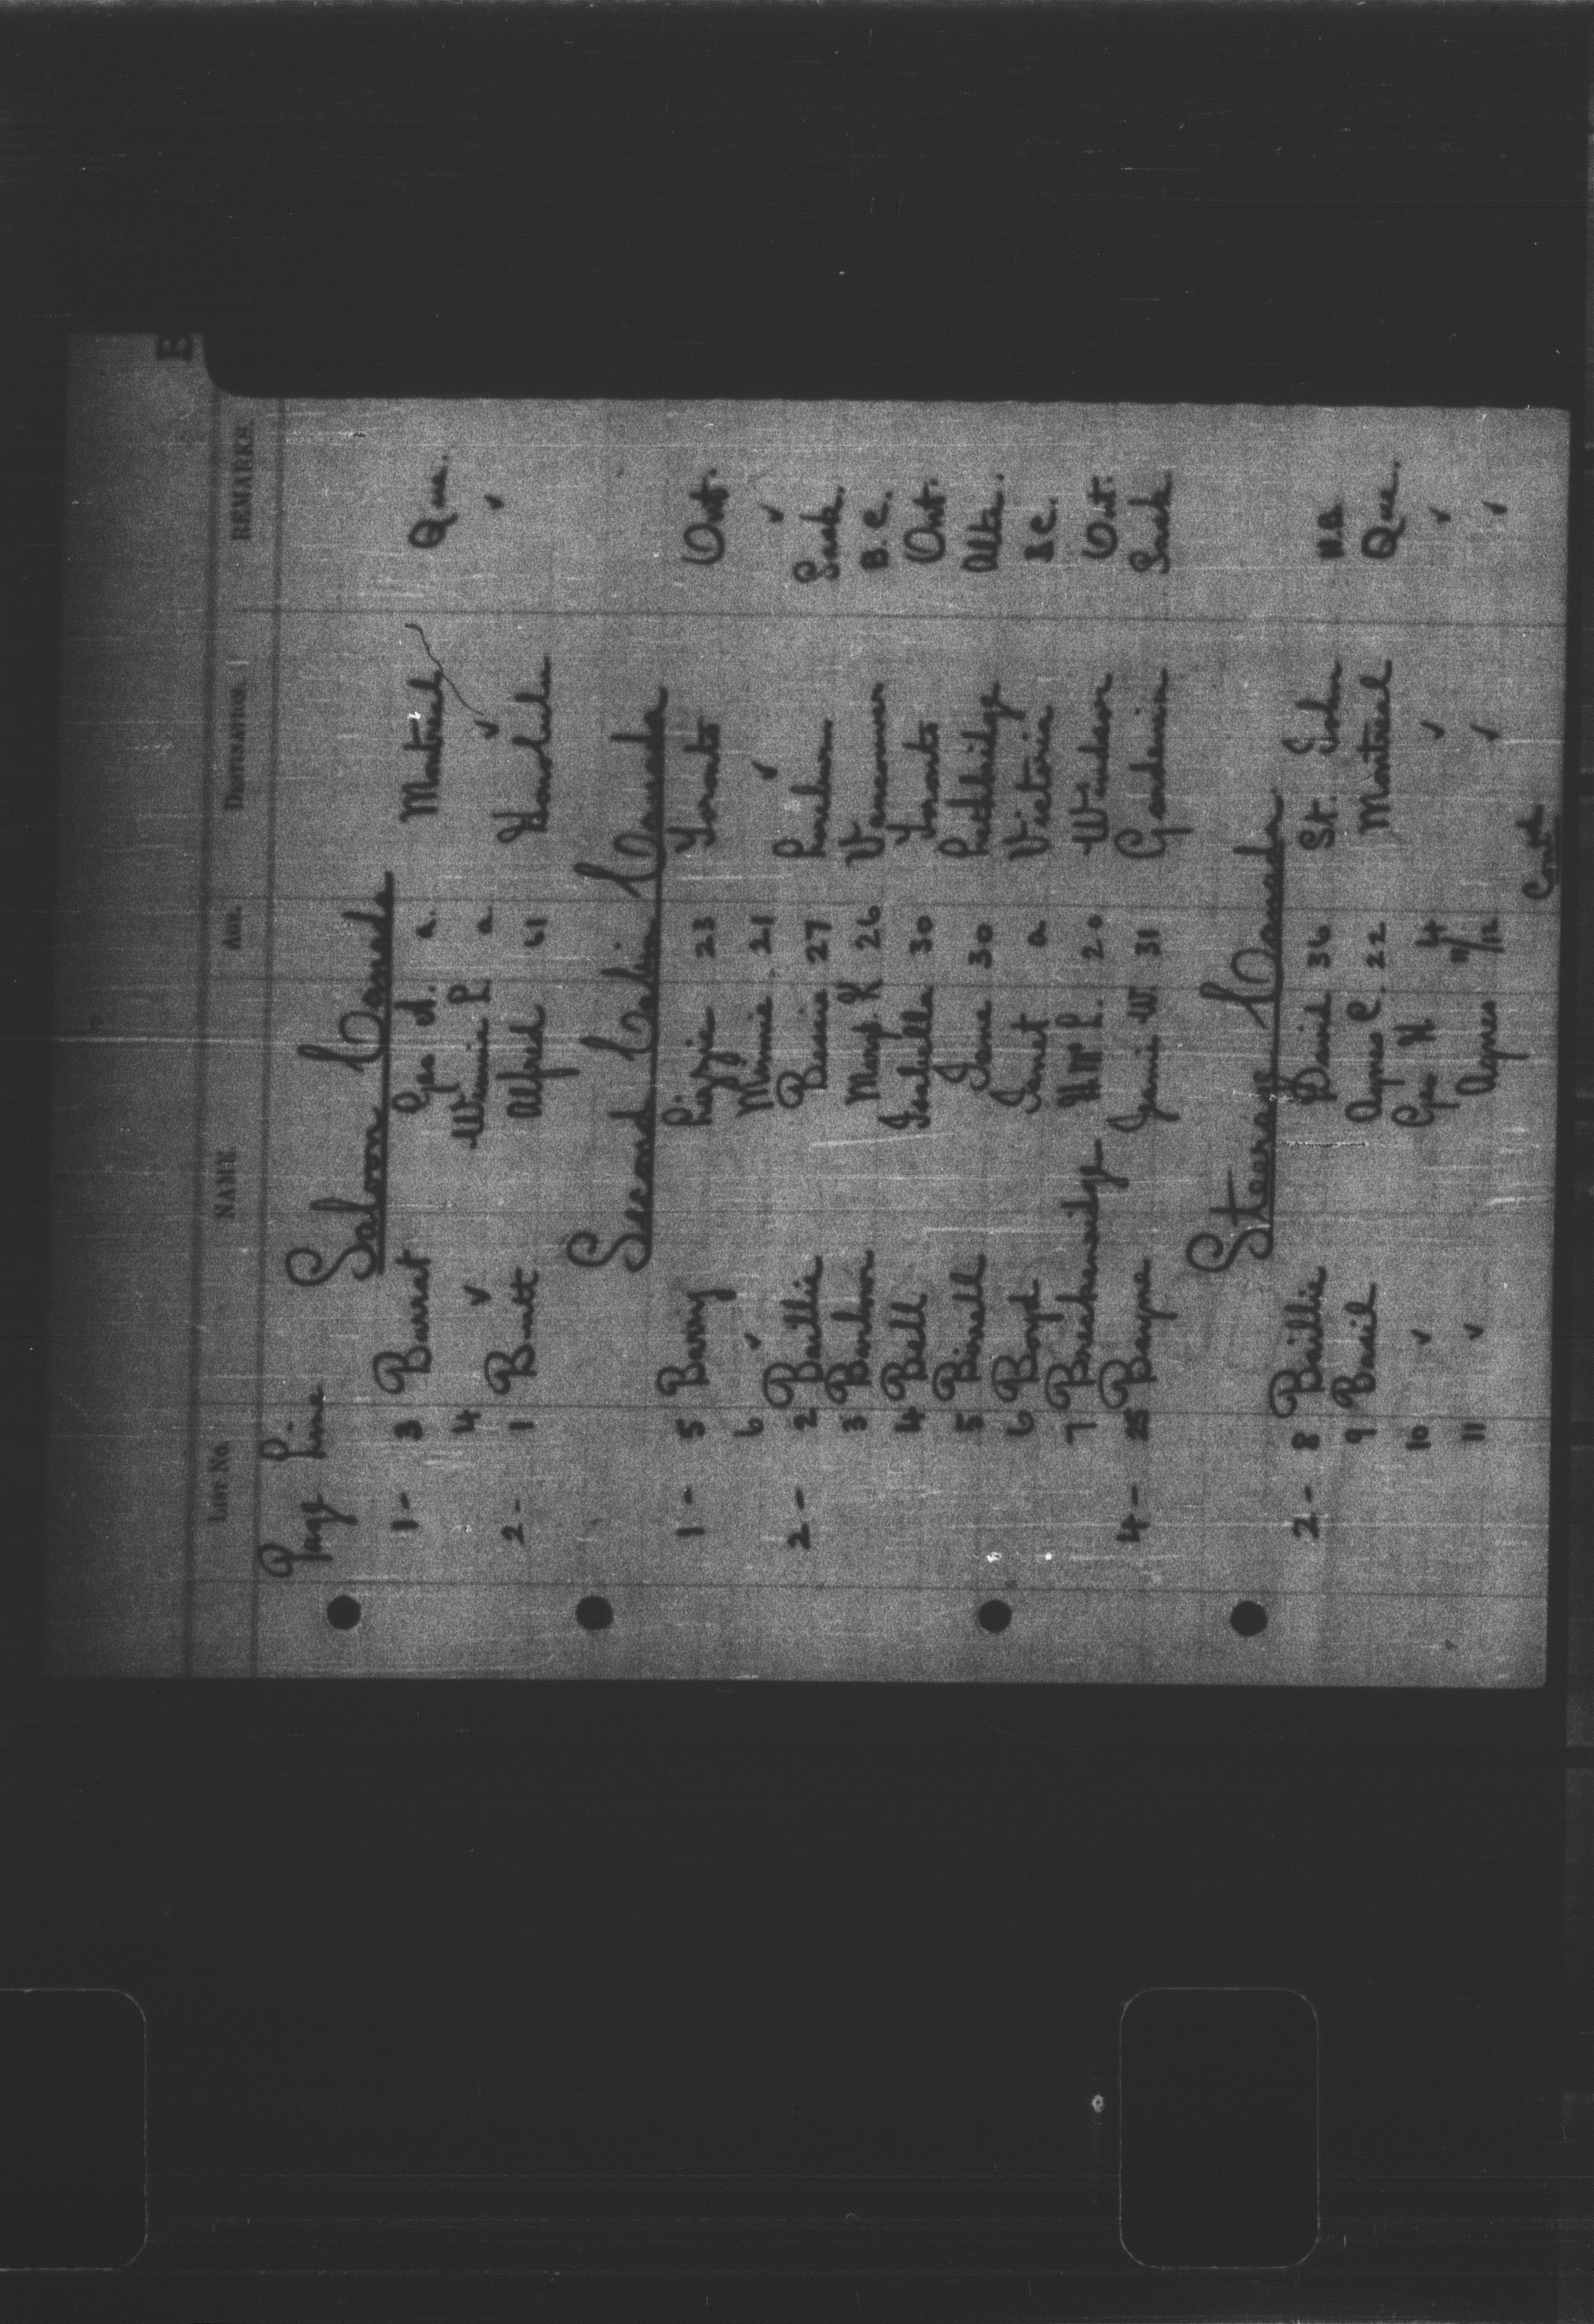 B
List No. NAME Age. Destination. REMARKS.
Page Line
Saloon Canada
1 - 3 Barrat Geo A. a. Montreal Que.
4 ✓ Winnie P. a ✓ ✓
2 - 1 Butt Alfred 61 Honolulu
Second Cabin Canada
1 - 5 Barry Lizzie 23 Toronto Ont.
6 ✓ Minnie 21 ✓ ✓
2 - 2 Baillie Bessie 27 Sask.
3 Mary K 26 Vancouver B.C.
4 Bell Isabella 30 Toronto Ont.
5 Birrell Jane 30 Lethbridge Alta.
6 Boyd Janet a Victoria B C.
7 Breckenridge Wm L. 20 Windsor Ont.
4 - 25 Bayne W. 31 Sask.
Steerage Canada
2 - 8 Baillie David 36 St. John N.B
9 Basil Agnes C. 22 Montreal Que.
10 ✓ Geo H 4 ✓ ✓
11 ✓ Agnes 11/12 ✓ ✓
Contd